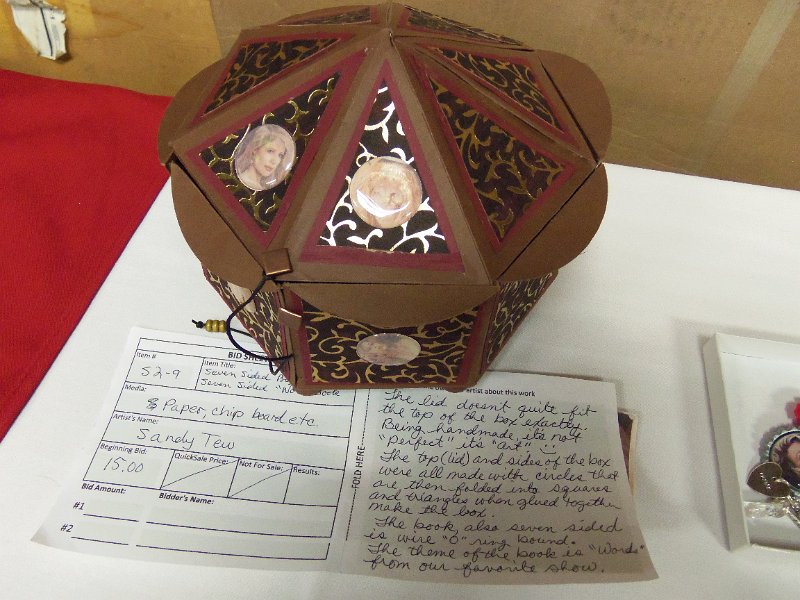 BID SHE
Item #
S2-9
Item Title:
Seven Sided B
Seven Sided "No
Media:
Paper, chip board etc.
Artist's Name:
Sandy Tew
Beginning Bid:
15.00
QuickSale Price:
Not For Sale:
Results:
Bid Amount:
Bidder's Name:
#1
#2
FOLD HERE
Artist about this work
The lid doesn't quite fit
the top of the box exactly.
Being handmade, it's not
"perfect" it's "art"
The top (lid) and sides of the box
were all made with circles that
are then folded into squares
and triangles when glued together
make the box.
The book, also seven sided
is wire "O" ring bound.
The theme of the book is "Words"
from our favorite show.